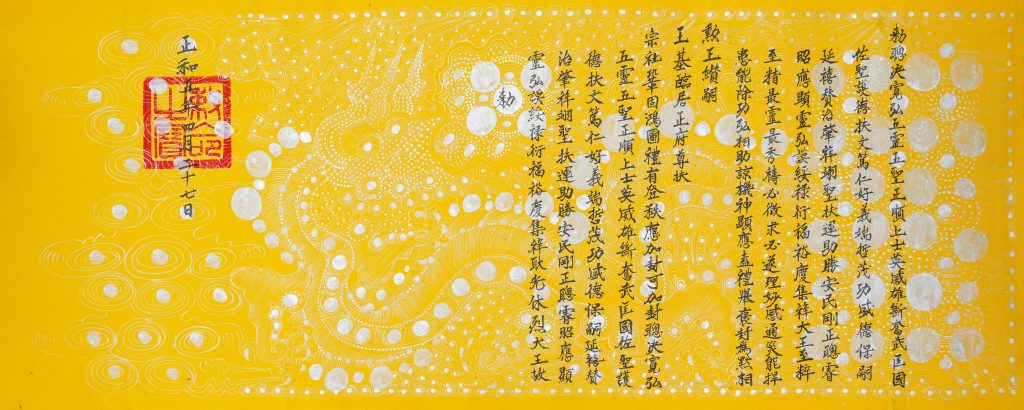 勅聰决寬弘五靈五聖正順上士英威雄斷奮武匡國
佐聖護德扶文篤仁好義端哲茂功盛德保嗣
延禧贊治肇祥翊聖扶運助勝安民剛正聰睿
昭應顯靈弘謨綏祿衍福裕慶集祥大王至粹
至精最靈最秀禱必徵求必遂理妙感通災能捍
患能除功弘相助諒機神顯應盍禮舉褒封為默相
勲王纘嗣
王基臨居正府尊扶
宗社鞏固鴻圖禮有登秩應加封可加封聰决寬弘
五靈五聖正順上士英威雄斷奮武匡國佐聖護
德扶文篤仁好義端哲茂功盛德保嗣延禧贊
治肇祥翊聖扶運助勝安民剛正聰睿昭應顯
靈弘謨綏祿衍福裕慶集祥耿光休烈大王故
勅
正和五年四月二十七日